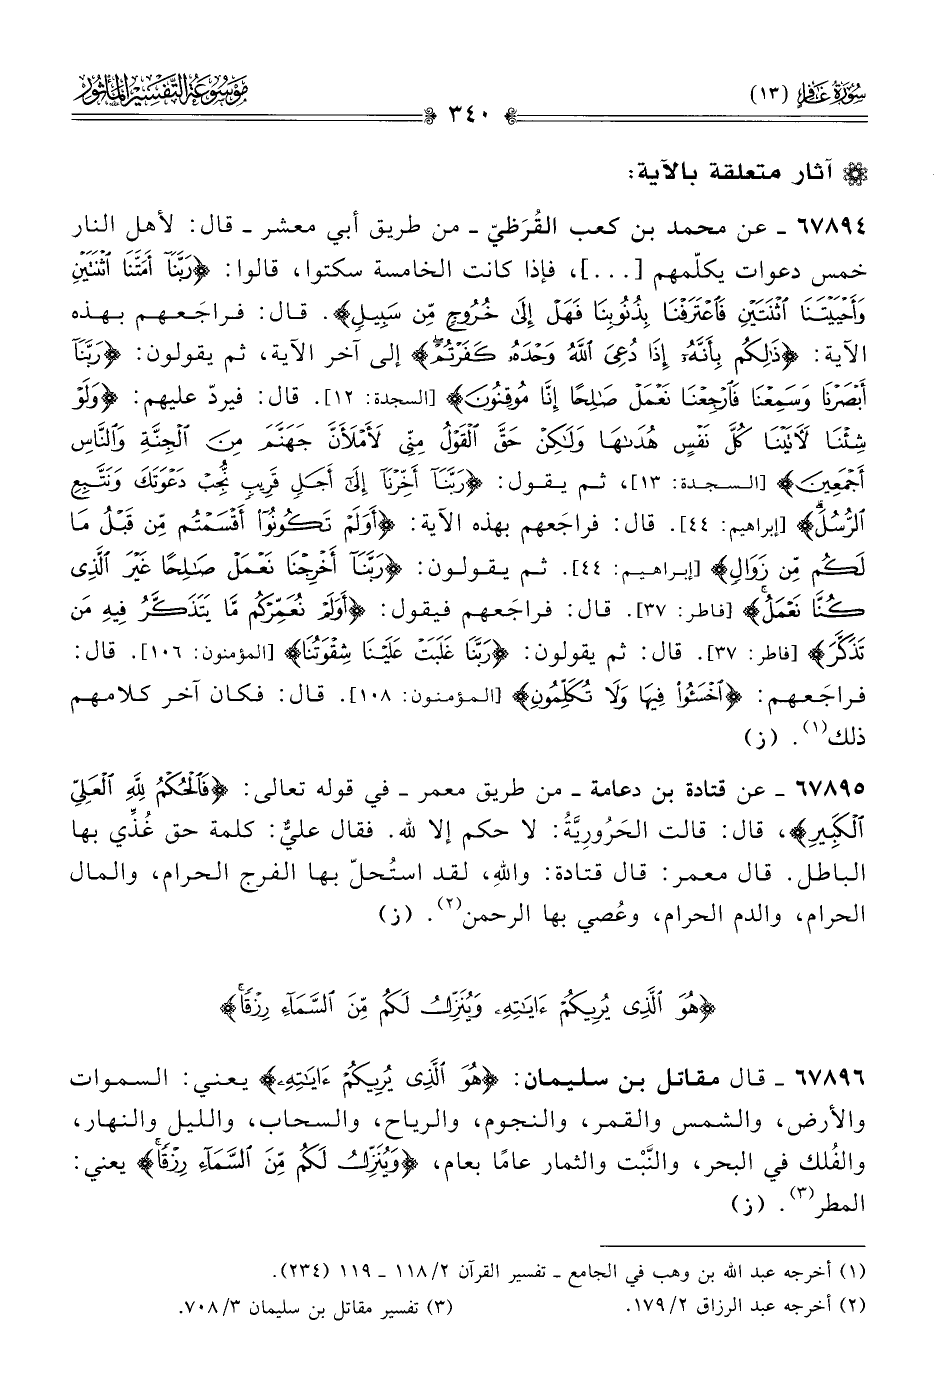 سُورَةُ غَافِر (١٣)
موسوعة التفسير المأثور
٣٤٠
آثار متعلقة بالآية:
٦٧٨٩٤ ـ عن محمد بن كعب القُرَظيّ ـ من طريق أبي معشر ـ قال: لأهل النار
خمس دعوات يكلّمهم [...]، فإذا كانت الخامسة سكتوا، قالوا: ﴿رَبَّنَآ أَمَتَّنَا ٱثۡنَتَيۡنِ
وَأَحۡيَيۡتَنَا ٱثۡنَتَيۡنِ فَٱعۡتَرَفۡنَا بِذُنُوبِنَا فَهَلۡ إِلَىٰ خُرُوجٖ مِّن سَبِيلٖ﴾. قال: فراجعهم بهذه
الآية: ﴿ذَٰلِكُم بِأَنَّهُۥٓ إِذَا دُعِيَ ٱللَّهُ وَحۡدَهُۥ كَفَرۡتُمۡ﴾ إلى آخر الآية، ثم يقولون: ﴿رَبَّنَآ
أَبۡصَرۡنَا وَسَمِعۡنَا فَٱرۡجِعۡنَا نَعۡمَلۡ صَٰلِحًا إِنَّا مُوقِنُونَ﴾ [السجدة: ١٢]. قال: فيردّ عليهم: ﴿وَلَوۡ
شِئۡنَا لَأٓتَيۡنَا كُلَّ نَفۡسٍ هُدَىٰهَا وَلَٰكِنۡ حَقَّ ٱلۡقَوۡلُ مِنِّي لَأَمۡلَأَنَّ جَهَنَّمَ مِنَ ٱلۡجِنَّةِ وَٱلنَّاسِ
أَجۡمَعِينَ﴾ [السجدة: ١٣]، ثم يقول: ﴿رَبَّنَآ أَخِّرۡنَآ إِلَىٰٓ أَجَلٖ قَرِيبٖ نُّجِبۡ دَعۡوَتَكَ وَنَتَّبِعِ
ٱلرُّسُلَ﴾ [إبراهيم: ٤٤]. قال: فراجَعهم بهذه الآية: ﴿أَوَلَمۡ تَكُونُوٓاْ أَقۡسَمۡتُم مِّن قَبۡلُ مَا
لَكُم مِّن زَوَالٖ﴾ [إبراهيم: ٤٤]. ثم يقولون: ﴿رَبَّنَآ أَخۡرِجۡنَا نَعۡمَلۡ صَٰلِحًا غَيۡرَ ٱلَّذِي
كُنَّا نَعۡمَلُۚ﴾ [فاطر: ٣٧]. قال: فراجعهم فيقول: ﴿أَوَلَمۡ نُعَمِّرۡكُم مَّا يَتَذَكَّرُ فِيهِ مَن
تَذَكَّرَ﴾ [فاطر: ٣٧]. قال: ثم يقولون: ﴿رَبَّنَا غَلَبَتۡ عَلَيۡنَا شِقۡوَتُنَا﴾ [المؤمنون: ١٠٦]. قال:
فراجَعهم: ﴿ٱخۡسَـُٔواْ فِيهَا وَلَا تُكَلِّمُونِ﴾ [المؤمنون: ١٠٨]. قال: فكان آخر كلامهم
ذلك(١). (ز)
٦٧٨٩٥ ـ عن قتادة بن دعامة ـ من طريق معمر ـ في قوله تعالى: ﴿فَٱلۡحُكۡمُ لِلَّهِ ٱلۡعَلِيِّ
ٱلۡكَبِيرِ﴾، قال: قالت الحَرُوريَّةُ: لا حكم إلا لله. فقال عليٌّ: كلمة حق عُزِّي بها
الباطل. قال معمر: قال قتادة: واللهِ، لقد استُحلّ بها الفرج الحرام، والمال
الحرام، والدم الحرام، وعُصي بها الرحمن(٢). (ز)
﴿هُوَ ٱلَّذِي يُرِيكُمۡ ءَايَٰتِهِۦ وَيُنَزِّلُ لَكُم مِّنَ ٱلسَّمَآءِ رِزۡقٗاۚ﴾
٦٧٨٩٦ ـ قال مقاتل بن سليمان: ﴿هُوَ ٱلَّذِي يُرِيكُمۡ ءَايَٰتِهِۦ﴾ يعني: السموات
والأرض، والشمس والقمر، والنجوم، والرياح، والسحاب، والليل والنهار،
والفُلك في البحر، والنَّبْت والثمار عامًا بعام، ﴿وَيُنَزِّلُ لَكُم مِّنَ ٱلسَّمَآءِ رِزۡقٗاۚ﴾ يعني:
المطر(٣). (ز)
(١) أخرجه عبد الله بن وهب في الجامع ـ تفسير القرآن ٢/ ١١٨ ـ ١١٩ (٢٣٤).
(٢) أخرجه عبد الرزاق ٢/ ١٧٩. (٣) تفسير مقاتل بن سليمان ٣/ ٧٠٨.